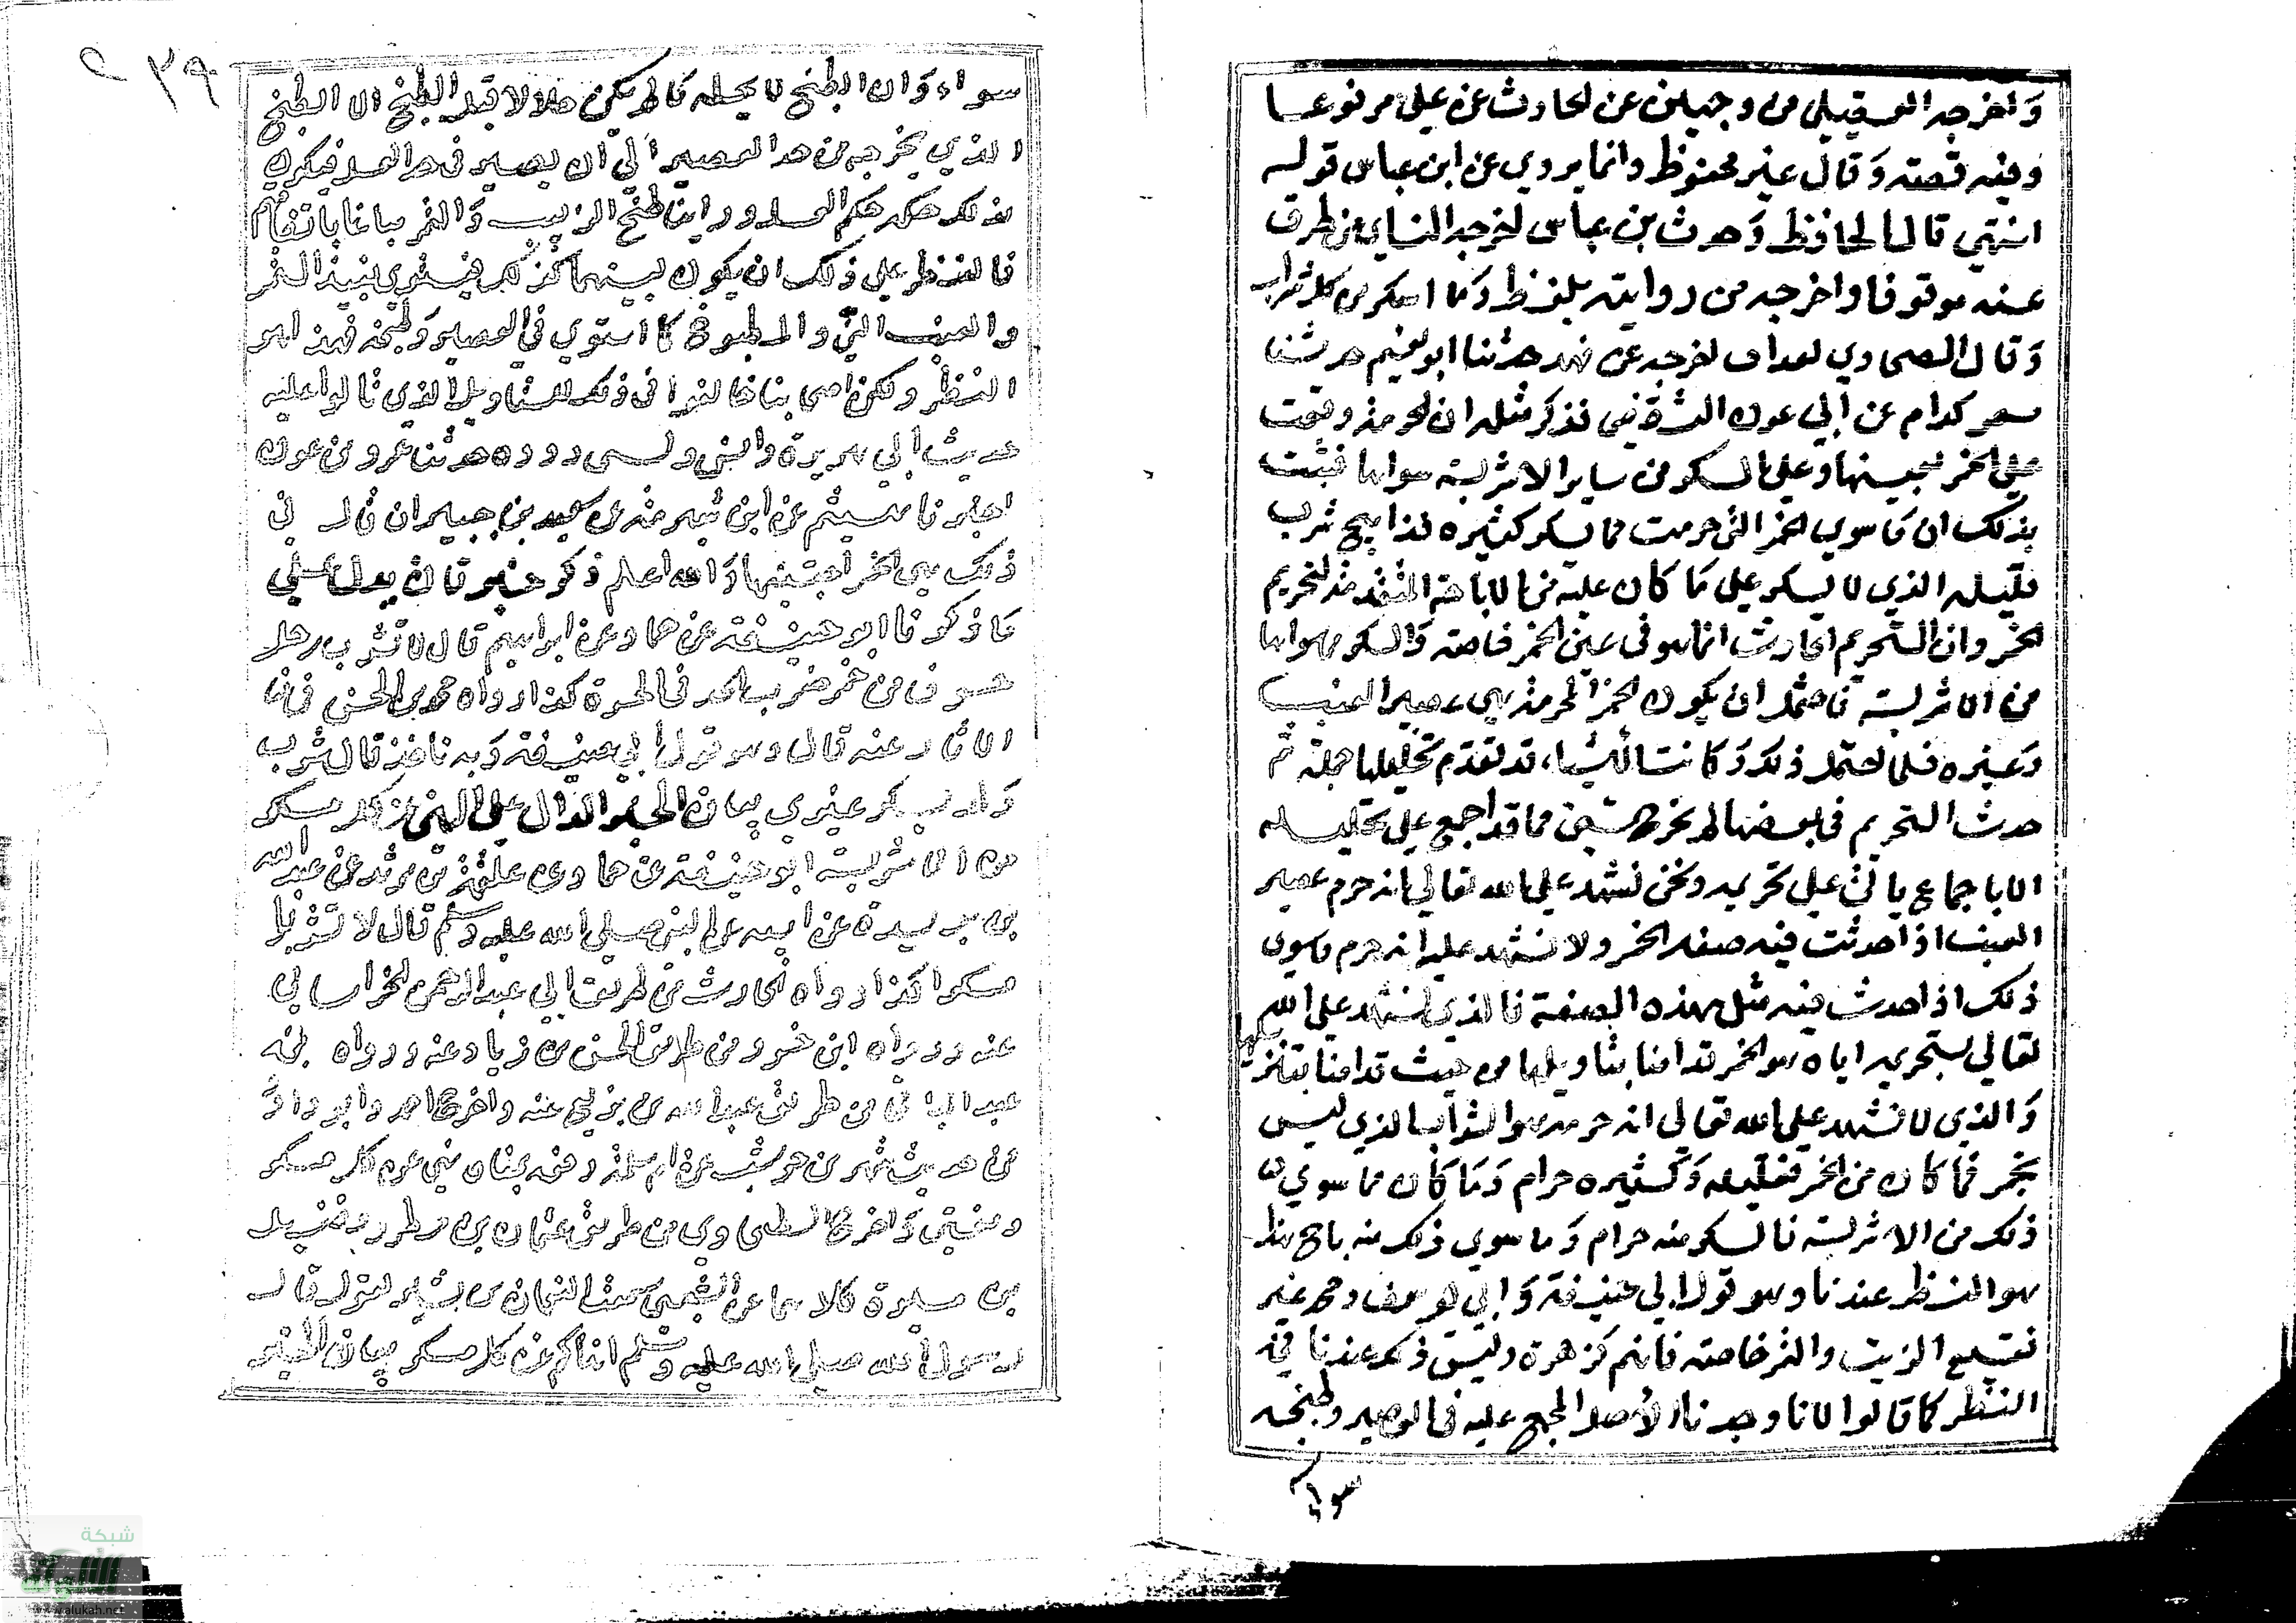 واخرجه العقيلي من وجهين عن الحارث عن علي مرفوعا
وفيه قصة وقال غير محفوظ وانما يروي عن ابن عباس قوله
انتهي قال الحافظ وحديث بن عباس اخرجه النساي من طرق
عنه موقوفا واخرجه من روايته بلفظ وما اسكر من كل شراب
وقال الطحاوي بعد ان اخرجه عن فهد حدثنا ابو نعيم حدثنا
مسعر كدام عن ابي عون الثقفي فذكر مثله ان الحرمة وقعت
علي الخمر بعينها وعلي السكر من ساير الاشربة سواها فثبت
بذلك ان ما سوي الخمر التي حرمت مما يسكر كثيره قد ابيح شرب
قليله الذي لا يسكر علي ما كان عليه من الاباحة المتقدمة لتحريم
الخمر وان التحريم الحادث انما هو في عين الخمر خاصة والسكر مما سواها
من الاشربة فاحتمل ان يكون الخمر المحرمة هي عصير العنب
وغيره فلما احتمل ذلك وكانت الاشياء قد تقدم تحليلها جملة ثم
حدث التحريم في بعضها لم يخرج شيئ مما قد اجمع علي تحليله
الا باجماع ياتي علي تحريمه ونحن نشهد علي الله تعالي انه حرم عصير
العنب اذا حدثت فيه صفة الخمر ولا نشهد عليه انه حرم ما سوي
ذلك اذا حدث فيه مثل هذه الصفة فالذي نشهد علي الله
تعالي بتحريمه اياه هو الخمر قد امنا بتاويلها من حيث قد امنا بتنزيلها
والذي لا نشهد علي الله تعالي انه حرمه هو الشراب الذي ليس
بخمر فما كان من الخمر فقليله وكثيره حرام وما كان مما سوي
ذلك من الاشربة فالسكر منه حرام وما سوي ذلك منه مباح هذا
هو النظر عندنا وهو قول ابي حنيفة وابي يوسف ومحمد غير
نقيع الزبيب والتمر خاصة فانهم كرهوه وليس ذلك عندنا في
النظر كما قالوا لانا وجدنا الاصل المجمع عليه في العصير وطبخه
سواء
٢٩
سواء وان الطبخ لا يحله ما لم يكن حلالا قبل الطبخ الا الطبخ
الذي يخرجه من حد العصير الي ان يصير في حد العسل فيكون
بذلك حكمه حكم العسل وراينا طبخ الزبيب والتمر مباحا باتفاقهم
فالنظر علي ذلك ان يكون نيئهما كذلك فيستوي نبيذ التمر
والعنب الني والمطبوخ كما استوي في العصير وطبخه فهذا هو
النظر ولكن اصحابنا خالفوا في ذلك للتاويل الذي تاولوا عليه
حديث ابي هريرة وانس ولشي رووه حدثنا عمرو بن عون
اخبرنا هشيم عن ابن شبرمة عن سعيد بن جبير ان قال في
ذلك هي الخمر اجتنبها والله اعلم ذكر خبر ثان يدل علي
ما ذكرنا ابو حنيفة عن حماد عن ابراهيم قال لا تشرب رجل
حسوة من خمر ضرب الحد في الحسوة كذا رواه محمد بن الحسن في
الاثار عنه قال وهو قول ابي حنيفة وبه ناخذ قال شرب
ولم يسكر عندي بيان الخبر الدال علي النهي عن كل مسكر
من الاشربة ابو حنيفة عن حماد عن علقمة بن مرثد عن عبد الله
بن بريدة عن ابيه عن النبي صلي الله عليه وسلم قال لا تشربوا
مسكرا كذا رواه الحارث من طريق ابي عبد الرحمن الخراساني
عنه ورواه ابن خسرو من طريق الحسن بن زياد عنه ورواه بن
عبد الباقي من طريق عبد الله بن بزيع عنه واخرجه احمد وابو داود
من حديث شهر بن حوشب عن ام سلمة رفعه بمعناه نهي عن كل مسكر
ومفتر واخرج الطحاوي من طريق عثمان بن مطر وفضيل
بن ميسرة كلاهما عن الشعبي سمعت النعمان بن بشير يقول قال
رسول الله صلي الله عليه وسلم انهاكم عن كل مسكر بيان الخبر
شبكة
www.alukah.net